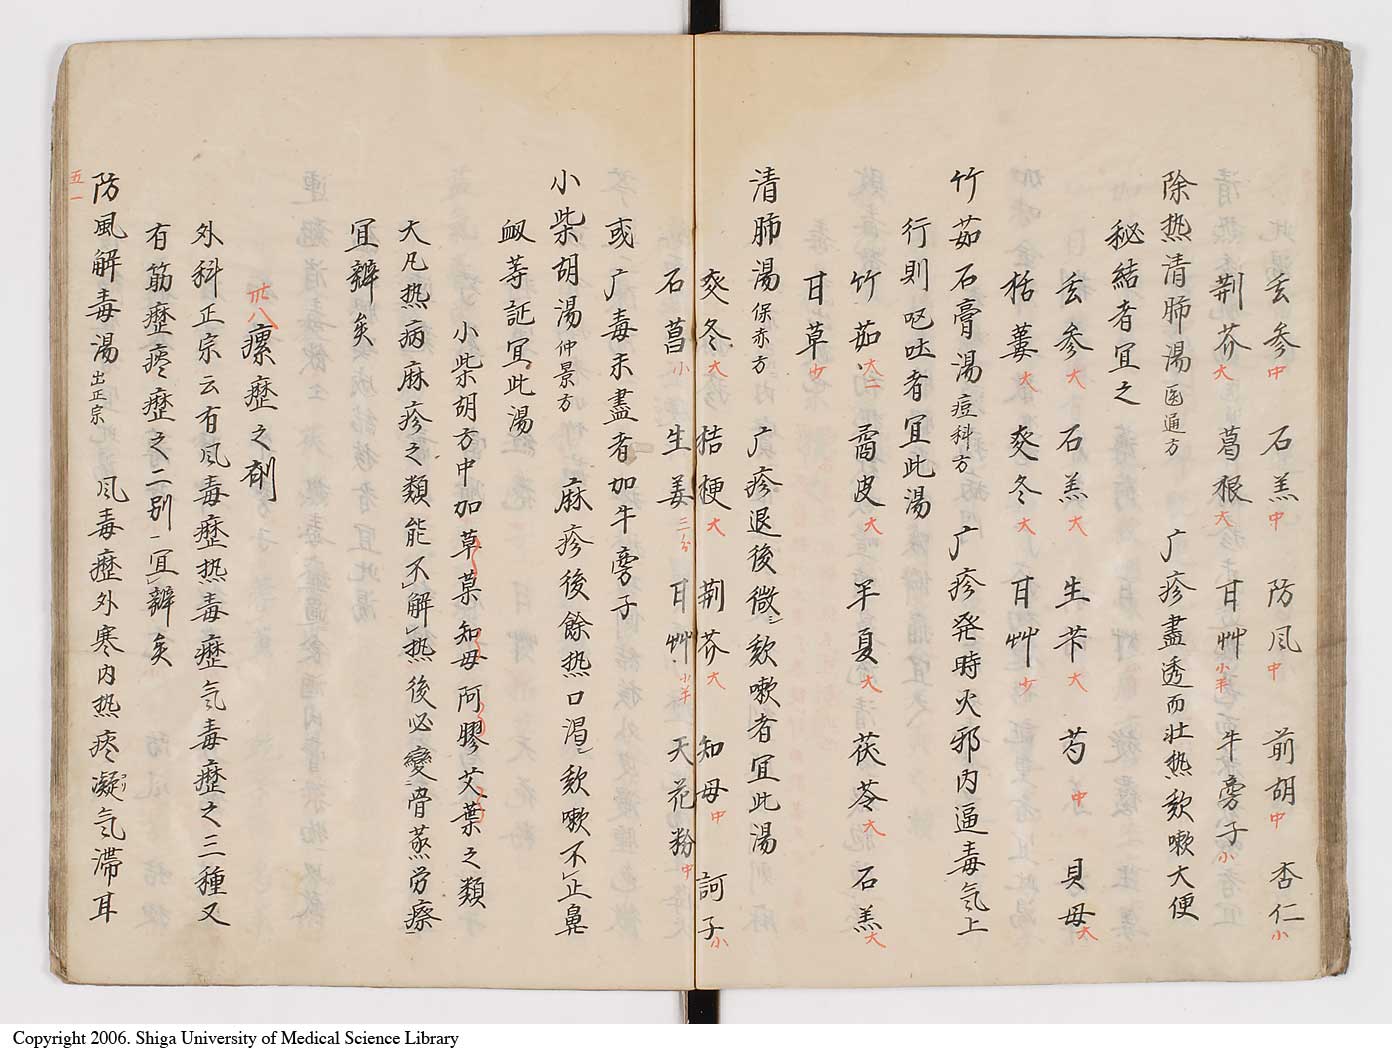 玄参中 石羔中 防风中 前胡中 杏仁小
荆芥大 葛根大 甘艸小半 牛旁子小
除热清肺湯医通方 广疹盡透而壮热欬嗽大便
秘結者宜之
玄参大 石羔大 生芐大 芍中 貝母大
栝蔞大 麦冬大 甘艸少
竹茹石膏湯痘科方 广疹発時火邪内逼毒气上
行則呕吐者宜此湯
竹茹大二 陳皮大 半夏大 茯苓大 石羔大
甘草少
清肺湯保赤方 广疹退後微欬嗽者宜此湯
麦冬大 桔梗大 荆芥大 知母中 訶子小
石菖小 生姜三分 甘艸小半 天花粉中
或广毒未盡者加牛旁子
小柴胡湯仲景方 麻疹後餘热口渇欬嗽不止鼻
衂等証宜此湯
小柴胡方中加草菓知母阿膠艾葉之類
大凡热病麻疹之類能不解热後必變骨蒸労瘵
宜辨矣
卅八瘰癧之剤
外科正宗云有风毒癧热毒癧气毒癧之三種又
有筋癧痰癧之二别宜辨矣
五一
防風解毒湯出正宗 风毒癧外寒内热痰凝气滞耳
Copyright 2006. Shiga University of Medical Science Library